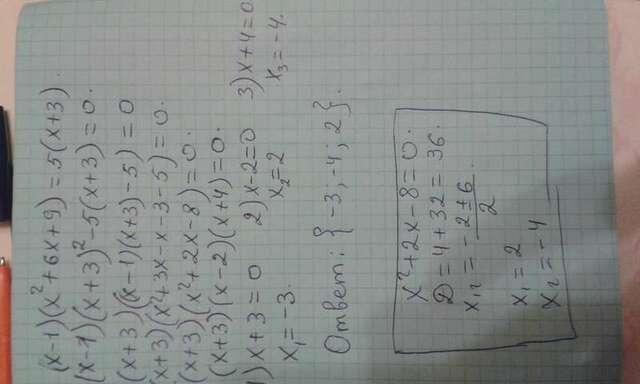 (x-1)(x²+6x+9)=5(x+3).
(x-1)(x+3)²-5(x+3)=0.
(x+3)((x-1)(x+3)-5)=0
(x+3)(x²+3x-x-3-5)=0.
(x+3)(x²+2x-8)=0.
(x+3)(x-2)(x+4)=0.
1) x+3=0 2) x-2=0 3) x+4=0
x₁=-3. x₂=2 x₃=-4.
Ответ: {-3; -4; 2}.
x²+2x-8=0.
D=4+32=36.
x₁,₂=(-2±6)/2.
x₁=2
x₂=-4